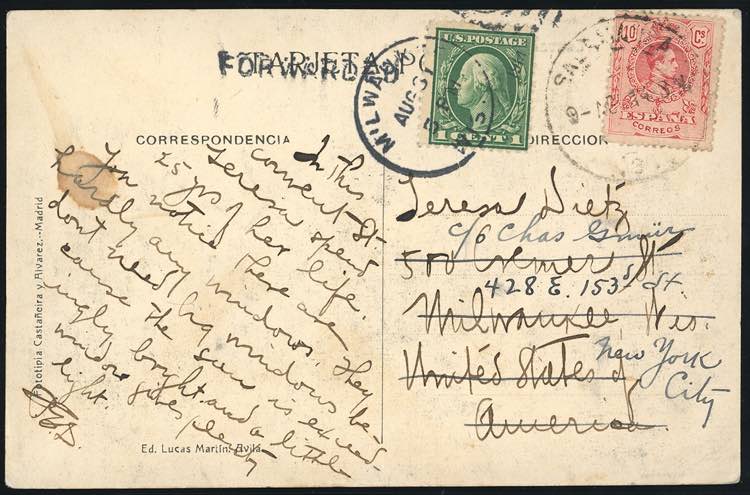 TARJETA PO
FORWARDED
MILWAUK
AUG 31
WIS.
U.S. POSTAGE
1 CENT 1
10 Cs
ESPAÑA
CORREOS
CORRESPONDENCIA
DIRECCION
In this
convent St.
Teresa spend
25 yrs of her life.
You notice there are
hardly any windows. They
dont need big windows be-
cause the sun is exceed-
ingly bright and a little
window gives plenty
light.
Teresa Dietz
c/o Chas
500 St
428 E. 153rd St
Milwaukee, Wis.
United States of
New York
City
America.
Fototipia Castañeira y Alvarez.-Madrid
Ed. Lucas Martín. Avila